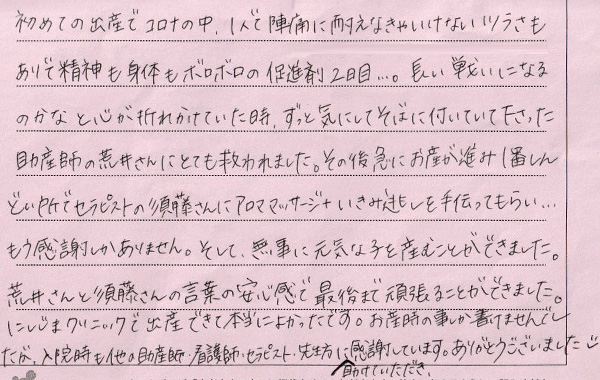 初めての出産でコロナの中、1人で陣痛に耐えなきゃいけないツラさも
ありで精神も身体もボロボロの促進剤2日目…。長い戦いになる
のかなと心が折れかけていた時、ずっと気にしてそばに付いていて下さった
助産師の荒井さんにとても救われました。その後急にお産が進み1番しん
どい時でセラピストの須藤さんにアロママッサージ+いきみ逃しを手伝ってもらい…
もう感謝しかありません。そして、無事に元気な子を産むことができました。
荒井さんと須藤さんの言葉の安心感で最後まで頑張ることができました。
にしじまクリニックで出産できて本当によかったです。お産時の事しか書けませんでし
たが、入院時も他の助産師・看護師・セラピスト・先生方に感謝しています。ありがとうございました
助けていただき、